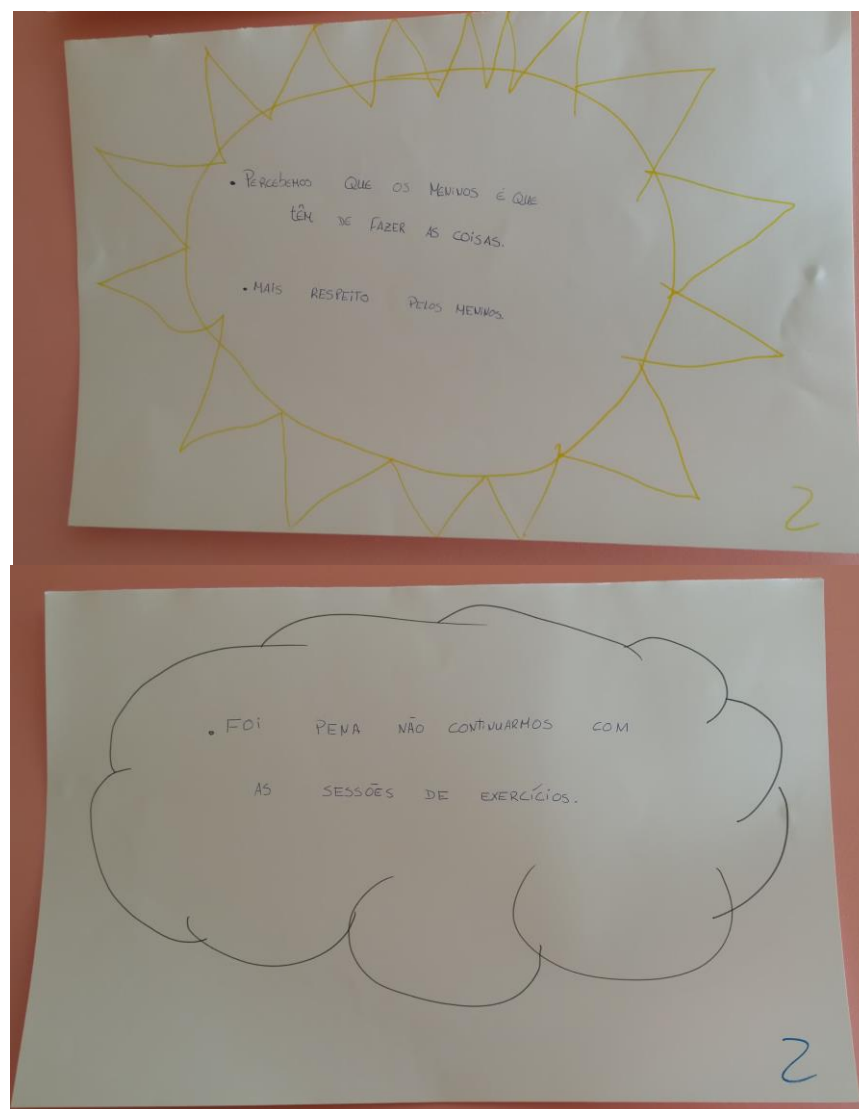 • PERCEBEMOS QUE OS MENINOS É QUE
TÊM DE FAZER AS COISAS.
• MAIS RESPEITO PELOS MENINOS.
2
• FOI PENA NÃO CONTINUARMOS COM
AS SESSÕES DE EXERCÍCIOS.
2